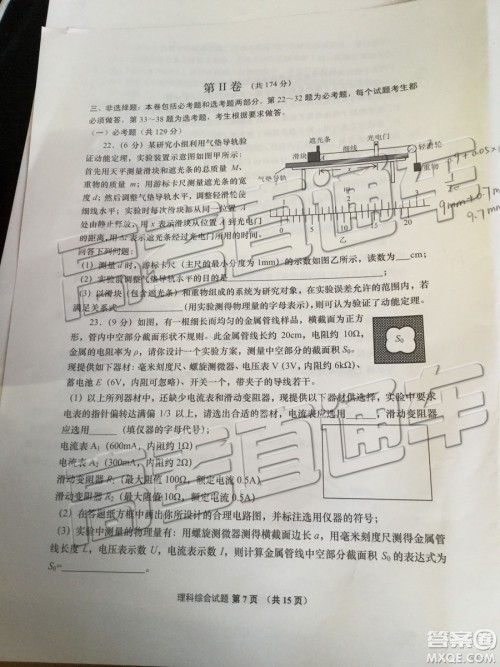 第Ⅱ卷 (共 174 分)
三、非选择题：本卷包括必考题和选考题两部分。第 22～32 题为必考题，每个试题考生都
必须做答。第 33～38 题为选考题，考生根据要求做答。
(一) 必考题 (共 129 分)
22. (6 分) 某研究小组利用气垫导轨验
证动能定理，实验装置示意图如图甲所示：
首先用天平测量滑块和遮光条的总质量 M、
重物的质量 m；用游标卡尺测量遮光条的宽度
d；然后调整气垫导轨水平，调整轻滑轮使
细线水平；实验时每次滑块都从同一位置 A
由静止释放，用 x 表示滑块从位置 A 到光电门
的距离，用 Δt 表示遮光条经过光电门所用的时间。
回答下列问题：
遮光条
光电门
滑块
细线
轻滑轮
气垫导轨
重物
甲
0
1
2
0
10
20
乙
9.7mm
(1) 测量 d 时，游标卡尺（主尺的最小分度为 1mm）的示数如图乙所示，读数为____cm；
(2) 实验前调整气垫导轨水平的目的是
(3) 以滑块（包含遮光条）和重物组成的系统为研究对象，在实验误差允许的范围内，若
满足关系式________(用实验测得物理量的字母表示)，则可认为验证了动能定理。
23. (9 分) 如图，有一根细长而均匀的金属管线样品，横截面为正方形，
管内中空部分截面形状不规则。此金属管线长约 20cm，电阻约 10Ω，
金属的电阻率为 ρ，请你设计一个实验方案，测量中空部分的截面积 S₀。
S₀
现提供如下器材：毫米刻度尺、螺旋测微器、电压表 V（3V，内阻约 3kΩ）、
蓄电池 E（6V，内阻可忽略）、开关一个，带夹子的导线若干。
(1) 以上所列器材中，还缺少电流表和滑动变阻器，现提供以下器材供选择，实验中要求
电表的指针偏转达满偏 1/3 以上，请选出合适的器材，电流表选用____，滑动变阻器
选用____（填仪器的字母代号）；
电流表 A₁（600mA，内阻约 1Ω）
电流表 A₂（300mA，内阻约 2Ω）
滑动变阻器 R₁（最大阻值 100Ω，额定电流 0.5A）
滑动变阻器 R₂（最大阻值 10Ω，额定电流 0.5A）
(2) 在答题纸方框中画出你所设计的合理电路图，并标注选用仪器的符号；
(3) 实验中测量的物理量有：用螺旋测微器测得横截面边长 a，用毫米刻度尺测得金属管
线长度 L，电压表示数 U，电流表示数 I，则计算金属管线中空部分截面积 S₀ 的表达式为
S₀=____________。
理科综合试题 第 7 页 （共 15 页）
高考直通车
答案圈
MXQE.COM